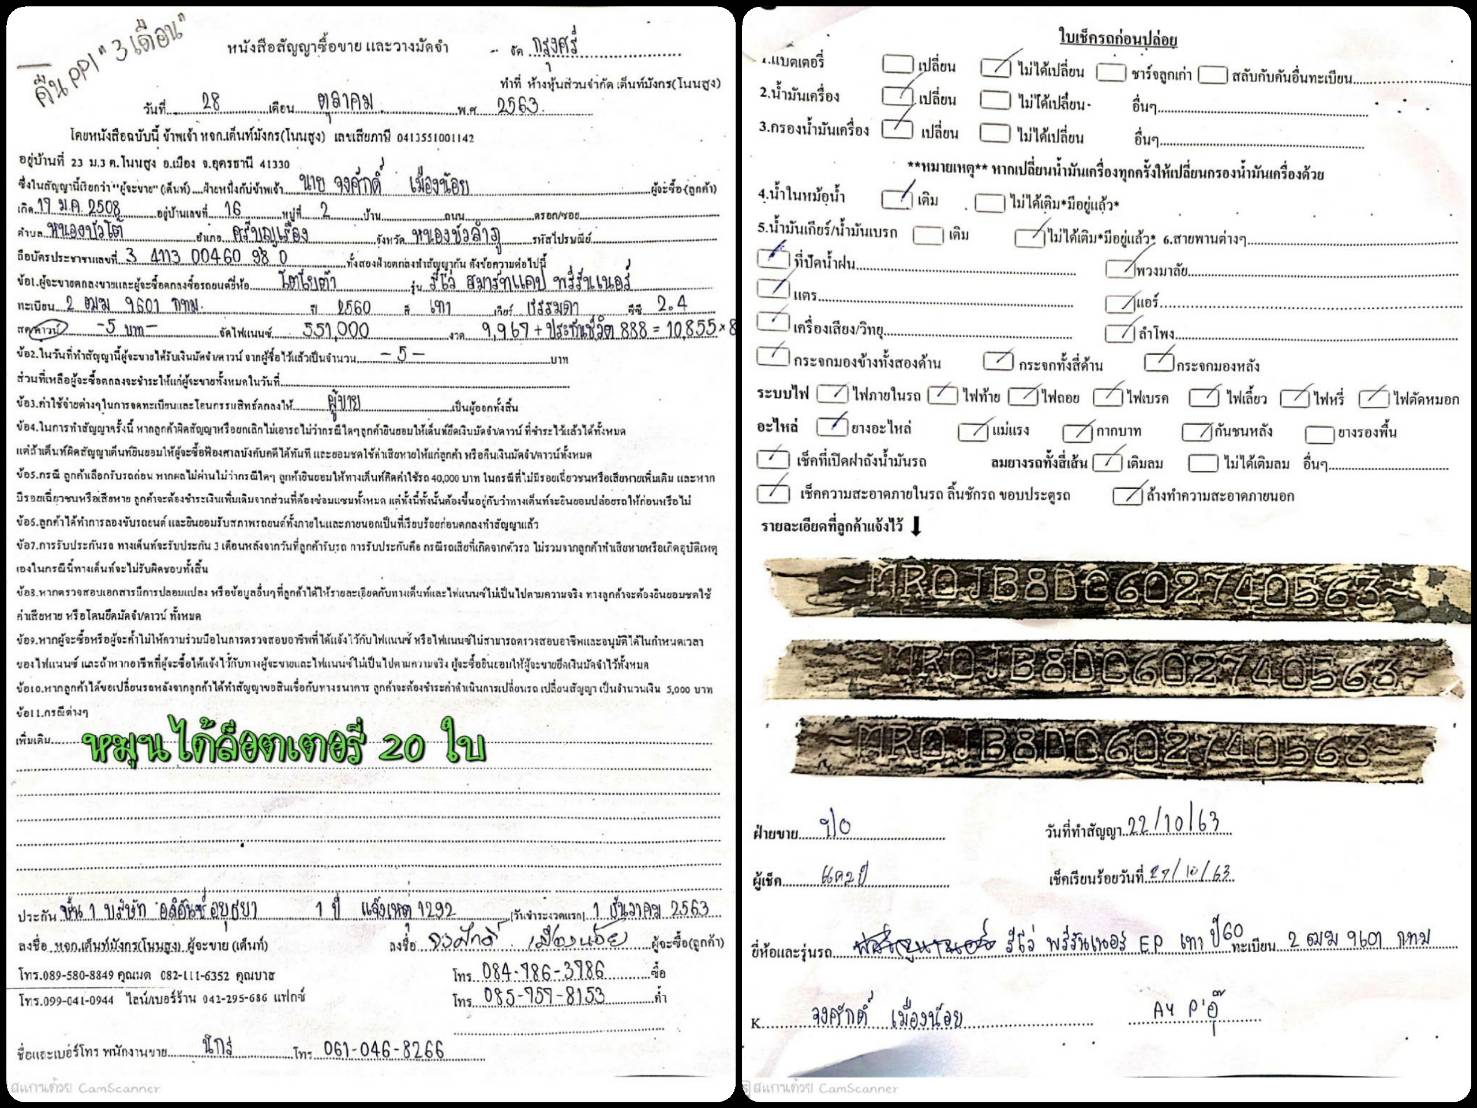 คืน PPI "3 เดือน"
หนังสือสัญญาซื้อขาย และวางมัดจำ
จัด กรุงศรี
ทำที่ ห้างหุ้นส่วนจำกัด เต็นท์มังกร(โนนสูง)
วันที่ 28 เดือน ตุลาคม พ.ศ 2563
โดยหนังสือฉบับนี้ ข้าพเจ้า หจก.เต็นท์มังกร(โนนสูง) เลขเสียภาษี 0413551001142
อยู่บ้านที่ 23 ม.3 ต.โนนสูง อ.เมือง จ.อุดรธานี 41330
ซึ่งในสัญญานี้เรียกว่า"ผู้จะขาย" (เต็นท์) ฝ่ายหนึ่งกับข้าพเจ้า นาย จงศักดิ์ เมืองน้อย ผู้จะซื้อ(ลูกค้า)
เกิด 17 ม.ค. 2508 อยู่บ้านเลขที่ 16 หมู่ที่ 2 บ้าน ถนน ตรอก/ซอย
ตำบล หนองบัวใต้ อำเภอ ศรีบุญเรือง จังหวัด หนองบัวลำภู รหัสไปรษณีย์
ถือบัตรประชาชนเลขที่ 3 4113 00460 98 0 ทั้งสองฝ่ายตกลงทำสัญญากัน ดังข้อความต่อไปนี้
ข้อ1.ผู้จะขายตกลงขายและผู้จะซื้อตกลงซื้อรถยนต์ยี่ห้อ โตโยต้า รุ่น รีโว่ สมาร์ทแคป พรีรันเนอร์
ทะเบียน 2 ฒฒ 9601 กทม. ปี 2560 สี เทา เกียร์ ธรรมดา ซีซี 2.4
สด/ดาวน์ -5 บาท- จัดไฟแนนซ์ 551,000 งวด 9,967 + ประกันชีวิต 888 = 10,855 × 8
ข้อ2.ในวันที่ทำสัญญานี้ผู้จะขายได้รับเงินมัดจำ/ดาวน์ จากผู้ซื้อไว้แล้วเป็นจำนวน -5- บาท
ส่วนที่เหลือผู้จะซื้อตกลงจะชำระให้แก่ผู้จะขายทั้งหมดในวันที่
ข้อ3.ค่าใช้จ่ายต่างๆในการจดทะเบียนและโอนกรรมสิทธิ์ตกลงให้ ผู้ขาย เป็นผู้ออกทั้งสิ้น
ข้อ4.ในการทำสัญญาครั้งนี้ หากลูกค้าผิดสัญญาหรือยกเลิกไม่เอารถ ไม่ว่ากรณีใดๆลูกค้ายินยอมให้เต็นท์ยึดเงินมัดจำ/ดาวน์ ที่ชำระไว้แล้วได้ทั้งหมด
แต่ถ้าเต็นท์ผิดสัญญาเต็นท์ยินยอมให้ผู้จะซื้อฟ้องศาลบังคับคดีได้ทันที และยอมชดใช้ค่าเสียหายให้แก่ลูกค้า หรือคืนเงินมัดจำ/ดาวน์ทั้งหมด
ข้อ5.กรณี ลูกค้าเลือกรับรถก่อน หากผลไม่ผ่านไม่ว่ากรณีใดๆ ลูกค้ายินยอมให้ทางเต็นท์คิดค่าใช้รถ 40,000 บาท ในกรณีที่ไม่มีรอยเฉี่ยวชนหรือเสียหายเพิ่มเติม และหาก
มีรอยเฉี่ยวชนหรือเสียหาย ลูกค้าจะต้องชำระเงินเพิ่มเติมจากส่วนที่ต้องซ่อมแซมทั้งหมด แต่ทั้งนี้ทั้งนั้นต้องขึ้นอยู่กับว่าทางเต็นท์จะยินยอมปล่อยรถให้ก่อนหรือไม่
ข้อ6.ลูกค้าได้ทำการลองขับรถยนต์ และยินยอมรับสภาพรถยนต์ทั้งภายในและภายนอกเป็นที่เรียบร้อยก่อนตกลงทำสัญญาแล้ว
ข้อ7.การรับประกันรถ ทางเต็นท์จะรับประกัน 3 เดือนหลังจากวันที่ลูกค้ารับรถ การรับประกันคือ กรณีรถเสียที่เกิดจากตัวรถ ไม่รวมจากลูกค้าทำเสียหายหรือเกิดอุบัติเหตุ
เองในกรณีนี้ทางเต็นท์จะไม่รับผิดชอบทั้งสิ้น
ข้อ8.หากตรวจสอบเอกสารมีการปลอมแปลง หรือข้อมูลอื่นๆที่ลูกค้าได้ให้รายละเอียดกับทางเต็นท์และไฟแนนซ์ไม่เป็นไปตามความจริง ทางลูกค้าจะต้องยินยอมชดใช้
ค่าเสียหาย หรือโดนยึดมัดจำ/ดาวน์ ทั้งหมด
ข้อ9.หากผู้จะซื้อหรือผู้จะค้ำไม่ให้ความร่วมมือในการตรวจสอบอาชีพที่ได้แจ้งไว้กับไฟแนนซ์ หรือไฟแนนซ์ไม่สามารถตรวจสอบอาชีพและอนุมัติได้ในกำหนดเวลา
ของไฟแนนซ์ และถ้าหากอาชีพที่ผู้จะซื้อได้แจ้งไว้กับทางผู้จะขายและไฟแนนซ์ไม่เป็นไปตามความจริง ผู้จะซื้อยินยอมให้ผู้จะขายยึดเงินมัดจำไว้ทั้งหมด
ข้อ10.หากลูกค้าได้ขอเปลี่ยนรถหลังจากลูกค้าได้ทำสัญญาขอสินเชื่อกับทางธนาคาร ลูกค้าจะต้องชำระค่าดำเนินการเปลี่ยนรถ เปลี่ยนสัญญา เป็นจำนวนเงิน 5,000 บาท
ข้อ11.กรณีต่างๆ
เพิ่มเติม หมุนได้ล็อตเตอรี่ 20 ใบ
ประกัน ชั้น 1 บริษัท อลิอันซ์ อยุธยา 1 ปี แจ้งเหตุ 1292 (วันชำระงวดแรก) 1 ธันวาคม 2563
ลงชื่อ หจก.เต็นท์มังกร(โนนสูง) ผู้จะขาย (เต็นท์) ลงชื่อ จงศักดิ์ เมืองน้อย ผู้จะซื้อ(ลูกค้า)
โทร.089-580-8849 คุณมด 082-111-6352 คุณบาส โทร. 084-786-3786 ซื้อ
โทร.099-041-0944 ไลน์/เบอร์ร้าน 042-295-686 แฟกซ์ โทร. 085-757-8153 ค้ำ
ชื่อและเบอร์โทร พนักงานขาย นิกร โทร 061-046-8266
สแกนด้วย CamScanner
ใบเช็ครถก่อนปล่อย
1.แบตเตอรี่ เปลี่ยน ไม่ได้เปลี่ยน ชาร์จลูกเก่า สลับกับคันอื่นทะเบียน
2.น้ำมันเครื่อง เปลี่ยน ไม่ได้เปลี่ยน อื่นๆ
3.กรองน้ำมันเครื่อง เปลี่ยน ไม่ได้เปลี่ยน อื่นๆ
**หมายเหตุ** หากเปลี่ยนน้ำมันเครื่องทุกครั้งให้เปลี่ยนกรองน้ำมันเครื่องด้วย
4.น้ำในหม้อน้ำ เติม ไม่ได้เติม*มีอยู่แล้ว*
5.น้ำมันเกียร์/น้ำมันเบรก เติม ไม่ได้เติม*มีอยู่แล้ว* 6.สายพานต่างๆ
ที่ปัดน้ำฝน พวงมาลัย
แตร แอร์
เครื่องเสียง/วิทยุ ลำโพง
กระจกมองข้างทั้งสองด้าน กระจกทั้งสี่ด้าน กระจกมองหลัง
ระบบไฟ ไฟภายในรถ ไฟท้าย ไฟถอย ไฟเบรค ไฟเลี้ยว ไฟหรี่ ไฟตัดหมอก
อะไหล่ ยางอะไหล่ แม่แรง กากบาท กันชนหลัง ยางรองพื้น
เช็คที่เปิดฝาถังน้ำมันรถ ลมยางรถทั้งสี่เส้น เติมลม ไม่ได้เติมลม อื่นๆ
เช็คความสะอาดภายในรถ ลิ้นชักรถ ขอบประตูรถ ล้างทำความสะอาดภายนอก
รายละเอียดที่ลูกค้าแจ้งไว้
~MR0JB8DC602740563~
~MR0JB8DC602740563~
~MR0JB8DC602740563~
ฝ่ายขาย วันที่ทำสัญญา 22/10/63
ผู้เช็ค เช็คเรียบร้อยวันที่ 27/10/63
ยี่ห้อและรุ่นรถ รีโว่ พรีรันเนอร์ EP เทา ปี60 ทะเบียน 2 ฒฒ 9601 กทม
K จงศักดิ์ เมืองน้อย AY P'อุ๊
สแกนด้วย CamScanner